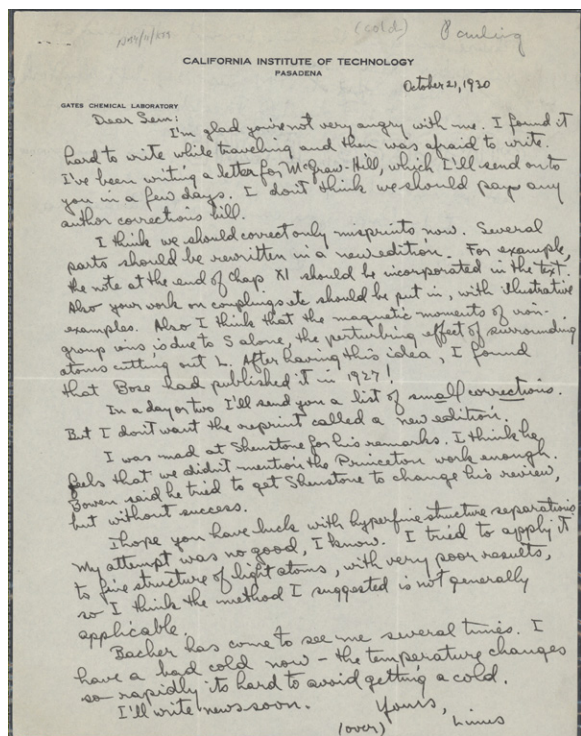 (cold) Pauling
CALIFORNIA INSTITUTE OF TECHNOLOGY
PASADENA
October 21, 1930
GATES CHEMICAL LABORATORY
Dear Sem:
I'm glad you're not very angry with me. I found it
hard to write while traveling and then was afraid to write.
I've been writing a letter for McGraw-Hill, which I'll send on to
you in a few days. I don't think we should pay any
author corrections bill.
I think we should correct only misprints now. Several
parts should be rewritten in a new edition. For example,
the note at the end of Chap. XI should be incorporated in the text.
Also your work on couplings etc should be put in, with illustrative
examples. Also I think that the magnetic moments of iron-
group ions, is due to S alone, the perturbing effect of surrounding
atoms cutting out L. After having this idea, I found
that Bose had published it in 1927!
In a day or two I'll send you a list of small corrections.
But I don't want the reprint called a new edition.
I was mad at Shenstone for his remarks. I think he
feels that we didn't mention the Princeton work enough.
Bowen said he tried to get Shenstone to change his review,
but without success.
I hope you have luck with hyperfine structure separations
My attempt was no good, I know. I tried to apply it
to fine structure of light atoms, with very poor results,
so I think the method I suggested is not generally
applicable.
Bacher has come to see me several times. I
have a bad cold now – the temperature changes
so rapidly its hard to avoid getting a cold.
I'll write news soon. Yours,
(over) Linus